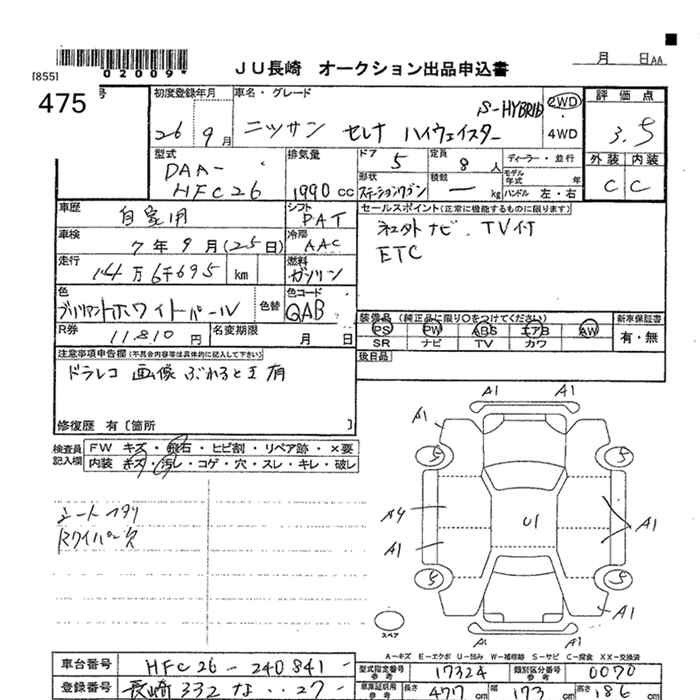 月 日AA
[855]
02009*
JU長崎 オークション出品申込書
475
号
初度登録年月
26年9月
車名・グレード
ニッサン セレナ ハイウェイスター
S-HYBRID
2WD
4WD
評価点
3.5
外装 内装
C C
型式
DAA-
HFC26
排気量
1990 CC
ドア 5
定員 8 人
形状
ステーションワゴン
積載
— kg
ディーラー・並行
モデル年式 年
ハンドル 左・右
車歴
自家用
シフト
DAT
車検
7年9月(25日)
冷房
AAC
走行
14万6千695 km
燃料
ガソリン
色
ブリリアントホワイトパール
色替
色コード
QAB
R券
11,810円
名変期限
月 日
セールスポイント(正常に機能するものに限ります)
社外ナビ、TV付
ETC
装備品(純正品に限り○をつけてください)
PS PW ABS エアB AW
SR ナビ TV カワ
新車保証書
有・無
後日品
注意事項申告欄(不具合内容等は具体的に記入して下さい)
ドラレコ 画像ぶれると主有
修復歴 有〔箇所 〕
検査員
記入欄
FW キズ・飛石・ヒビ割・リペア跡・×要
内装 キズ・汚レ・コゲ・穴・スレ・キレ・破レ
シートヘタリ
Rワイパー欠
A1 A1
A1
5 5
A4
A1
U1
A1
5 5
A1
A1
スペア
A-キズ E-エクボ U-凹み W-補修跡 S-サビ C-腐食 XX-交換済
車台番号
HFC26-240841-
型式指定番号
参考
17324
類別区分番号
参考
0070
登録番号
長崎 332 な ・・27-
車庫証明用
参考
長さ 477 cm
幅 173 cm
高さ 186 cm